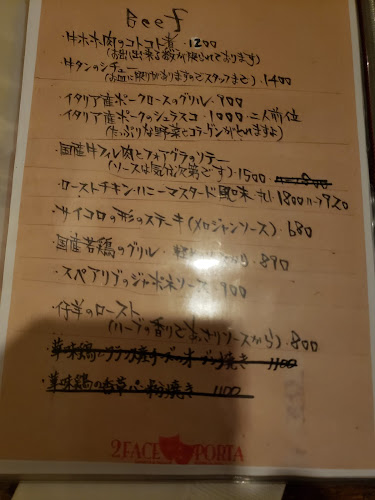 Beef
・牛ホホ肉のコトコト煮・1200
(お出し出来る数が限られております)
・牛タンのシチュー
(お皿に限りがありますのでスタッフまで)・1400
・イタリア産ポークロースのグリル・900
・イタリア産ポークのシュラスコ・1000・二人前位
(たっぷりな野菜とコラーゲンがとれますよ)
・国産牛フィレ肉とフォアグラのソテー
(ソースは気分次第です)1500
・ローストチキン・ハニーマスタード風味 1800 ハーフ920
・サイコロの形のステーキ(メロジャンソース)・680
・国産若鶏のグリル・890
・スペアリブのジャポネソース・900
・仔羊のロースト
(ハーブの香りであっさりソースから)・800
草味鶏 1100
・草味鶏の香草パン粉焼き 1100
2FACE PORTA